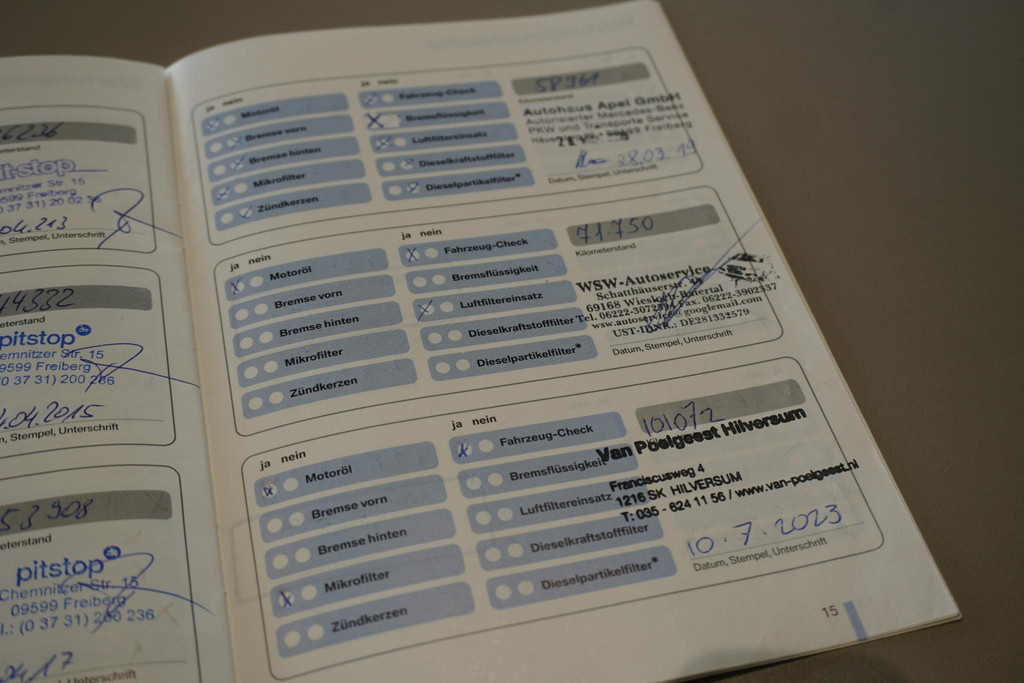 pitstop
Chemnitzer Str. 15
09599 Freiberg
Stempel, Unterschrift
14332
pitstop
Chemnitzer Str. 15
09599 Freiberg
(0 37 31) 200 236
.04.2015
Stempel, Unterschrift
53 908
pitstop
Chemnitzer Str. 15
09599 Freiberg
(0 37 31) 200 236
ja nein
Motoröl
Bremse vorn
Bremse hinten
Mikrofilter
Zündkerzen
ja nein
Fahrzeug-Check
Bremsflüssigkeit
Luftfiltereinsatz
Dieselkraftstofffilter
Dieselpartikelfilter*
58961
Kilometerstand
Autohaus Apel GmbH
Autorisierter Mercedes-Benz
PKW und Transporte Service
Freiberg
28.03.19
Datum, Stempel, Unterschrift
ja nein
Motoröl
Bremse vorn
Bremse hinten
Mikrofilter
Zündkerzen
ja nein
Fahrzeug-Check
Bremsflüssigkeit
Luftfiltereinsatz
Dieselkraftstofffilter
Dieselpartikelfilter*
71.750
Kilometerstand
WSW-Autoservice
Schatthäuserstr.
69168 Wiesloch-Baiertal
Fax. 06222-3902537
www.autoservice@googlemail.com
UST-IDNR.: DE281332579
Datum, Stempel, Unterschrift
ja nein
Motoröl
Bremse vorn
Bremse hinten
Mikrofilter
Zündkerzen
ja nein
Fahrzeug-Check
Bremsflüssigkeit
Luftfiltereinsatz
Dieselkraftstofffilter
Dieselpartikelfilter*
101072
Van Poelgeest Hilversum
Franciscusweg 4
1216 SK HILVERSUM
T: 035 - 624 11 56 / www.van-poelgeest.nl
10.7.2023
Datum, Stempel, Unterschrift
15